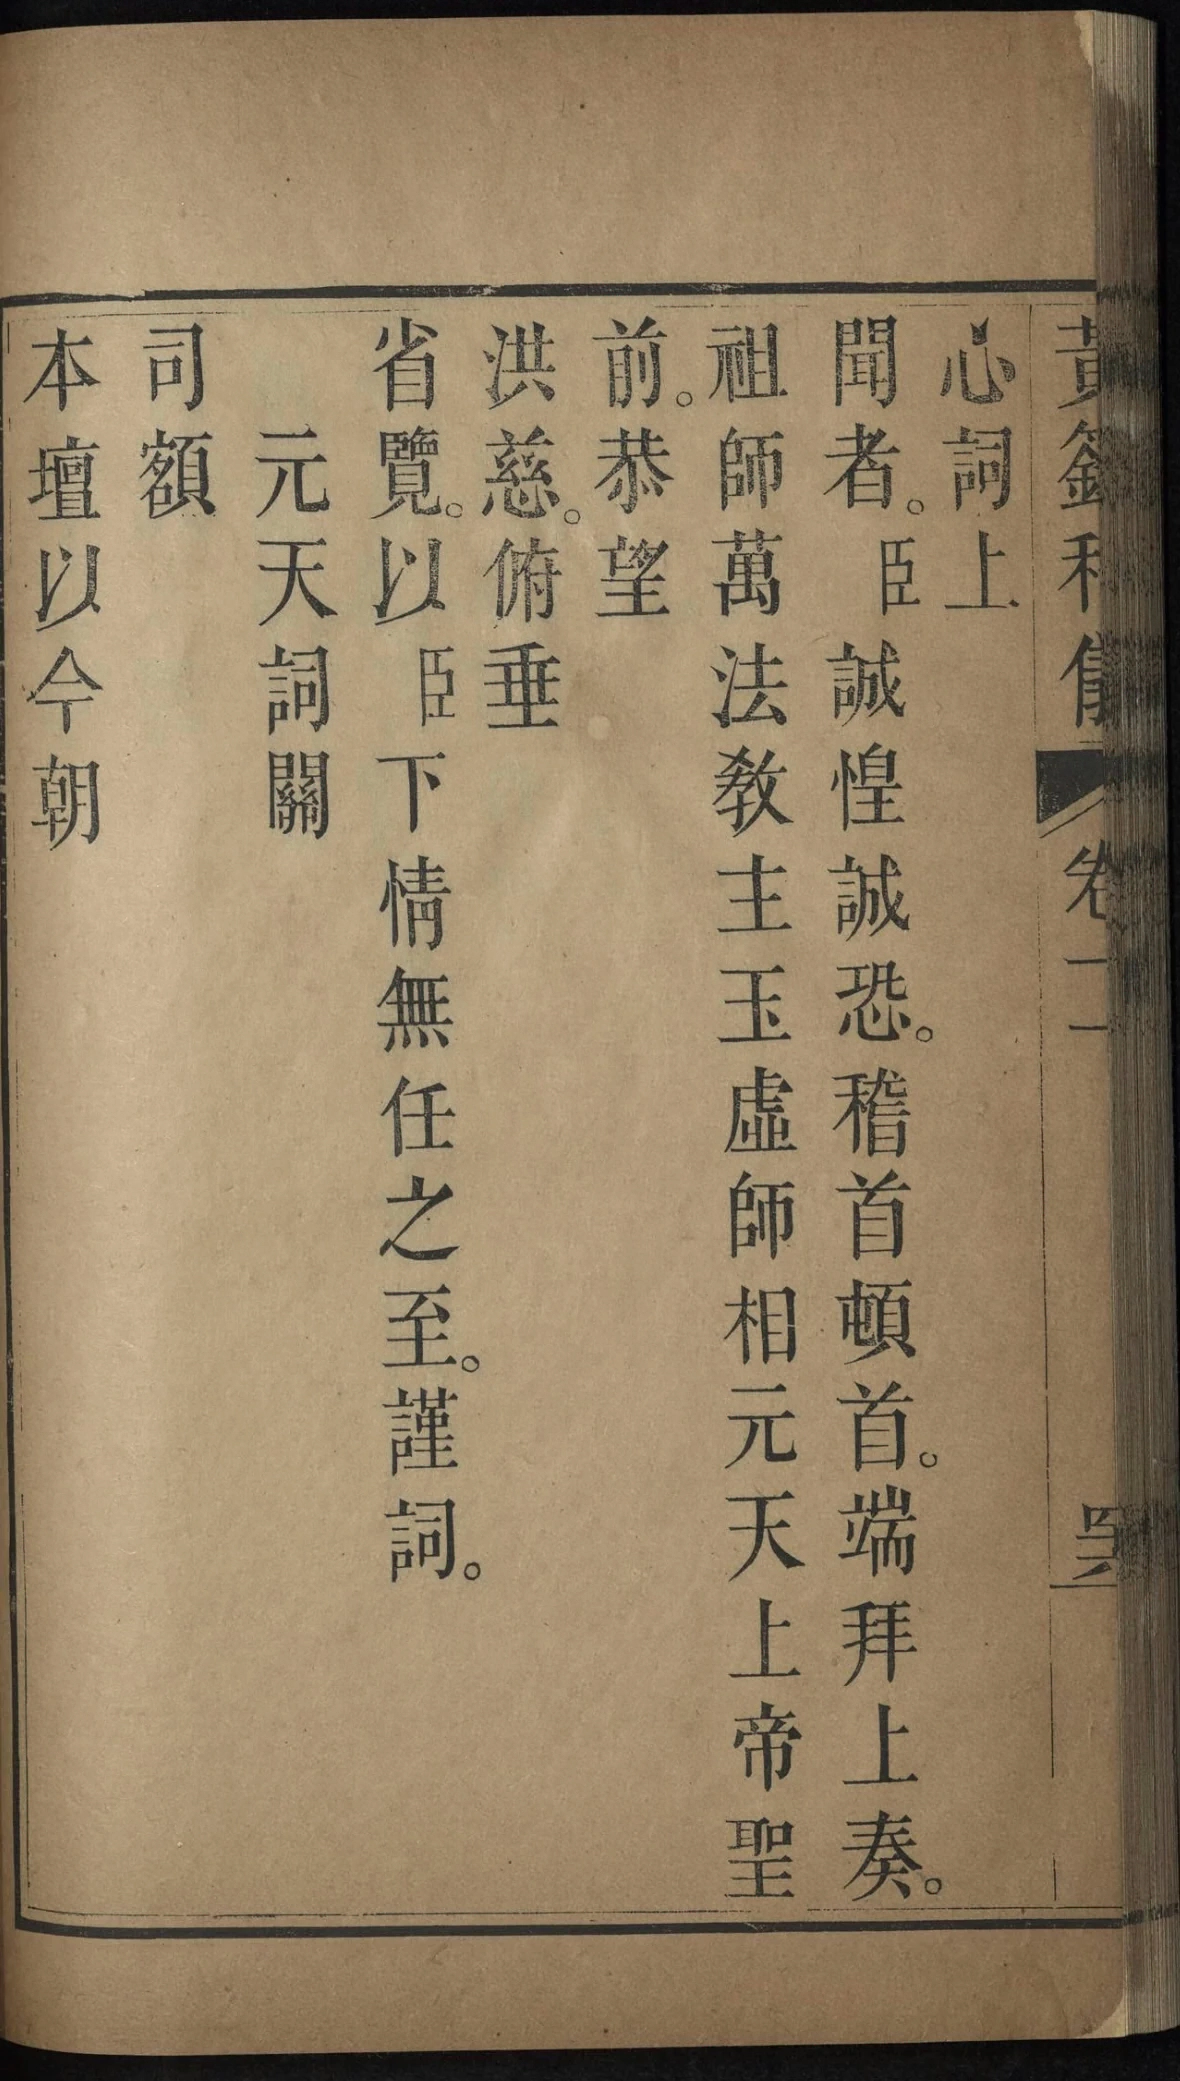 黃籙科儀 卷十一 四六
心詞上
聞者。臣誠惶誠恐。稽首頓首。端拜上奏。
祖師萬法教主玉虛師相元天上帝聖
前。恭望
洪慈。俯垂
省覽。以臣下情無任之至。謹詞。
元天詞關
司額
本壇以今朝